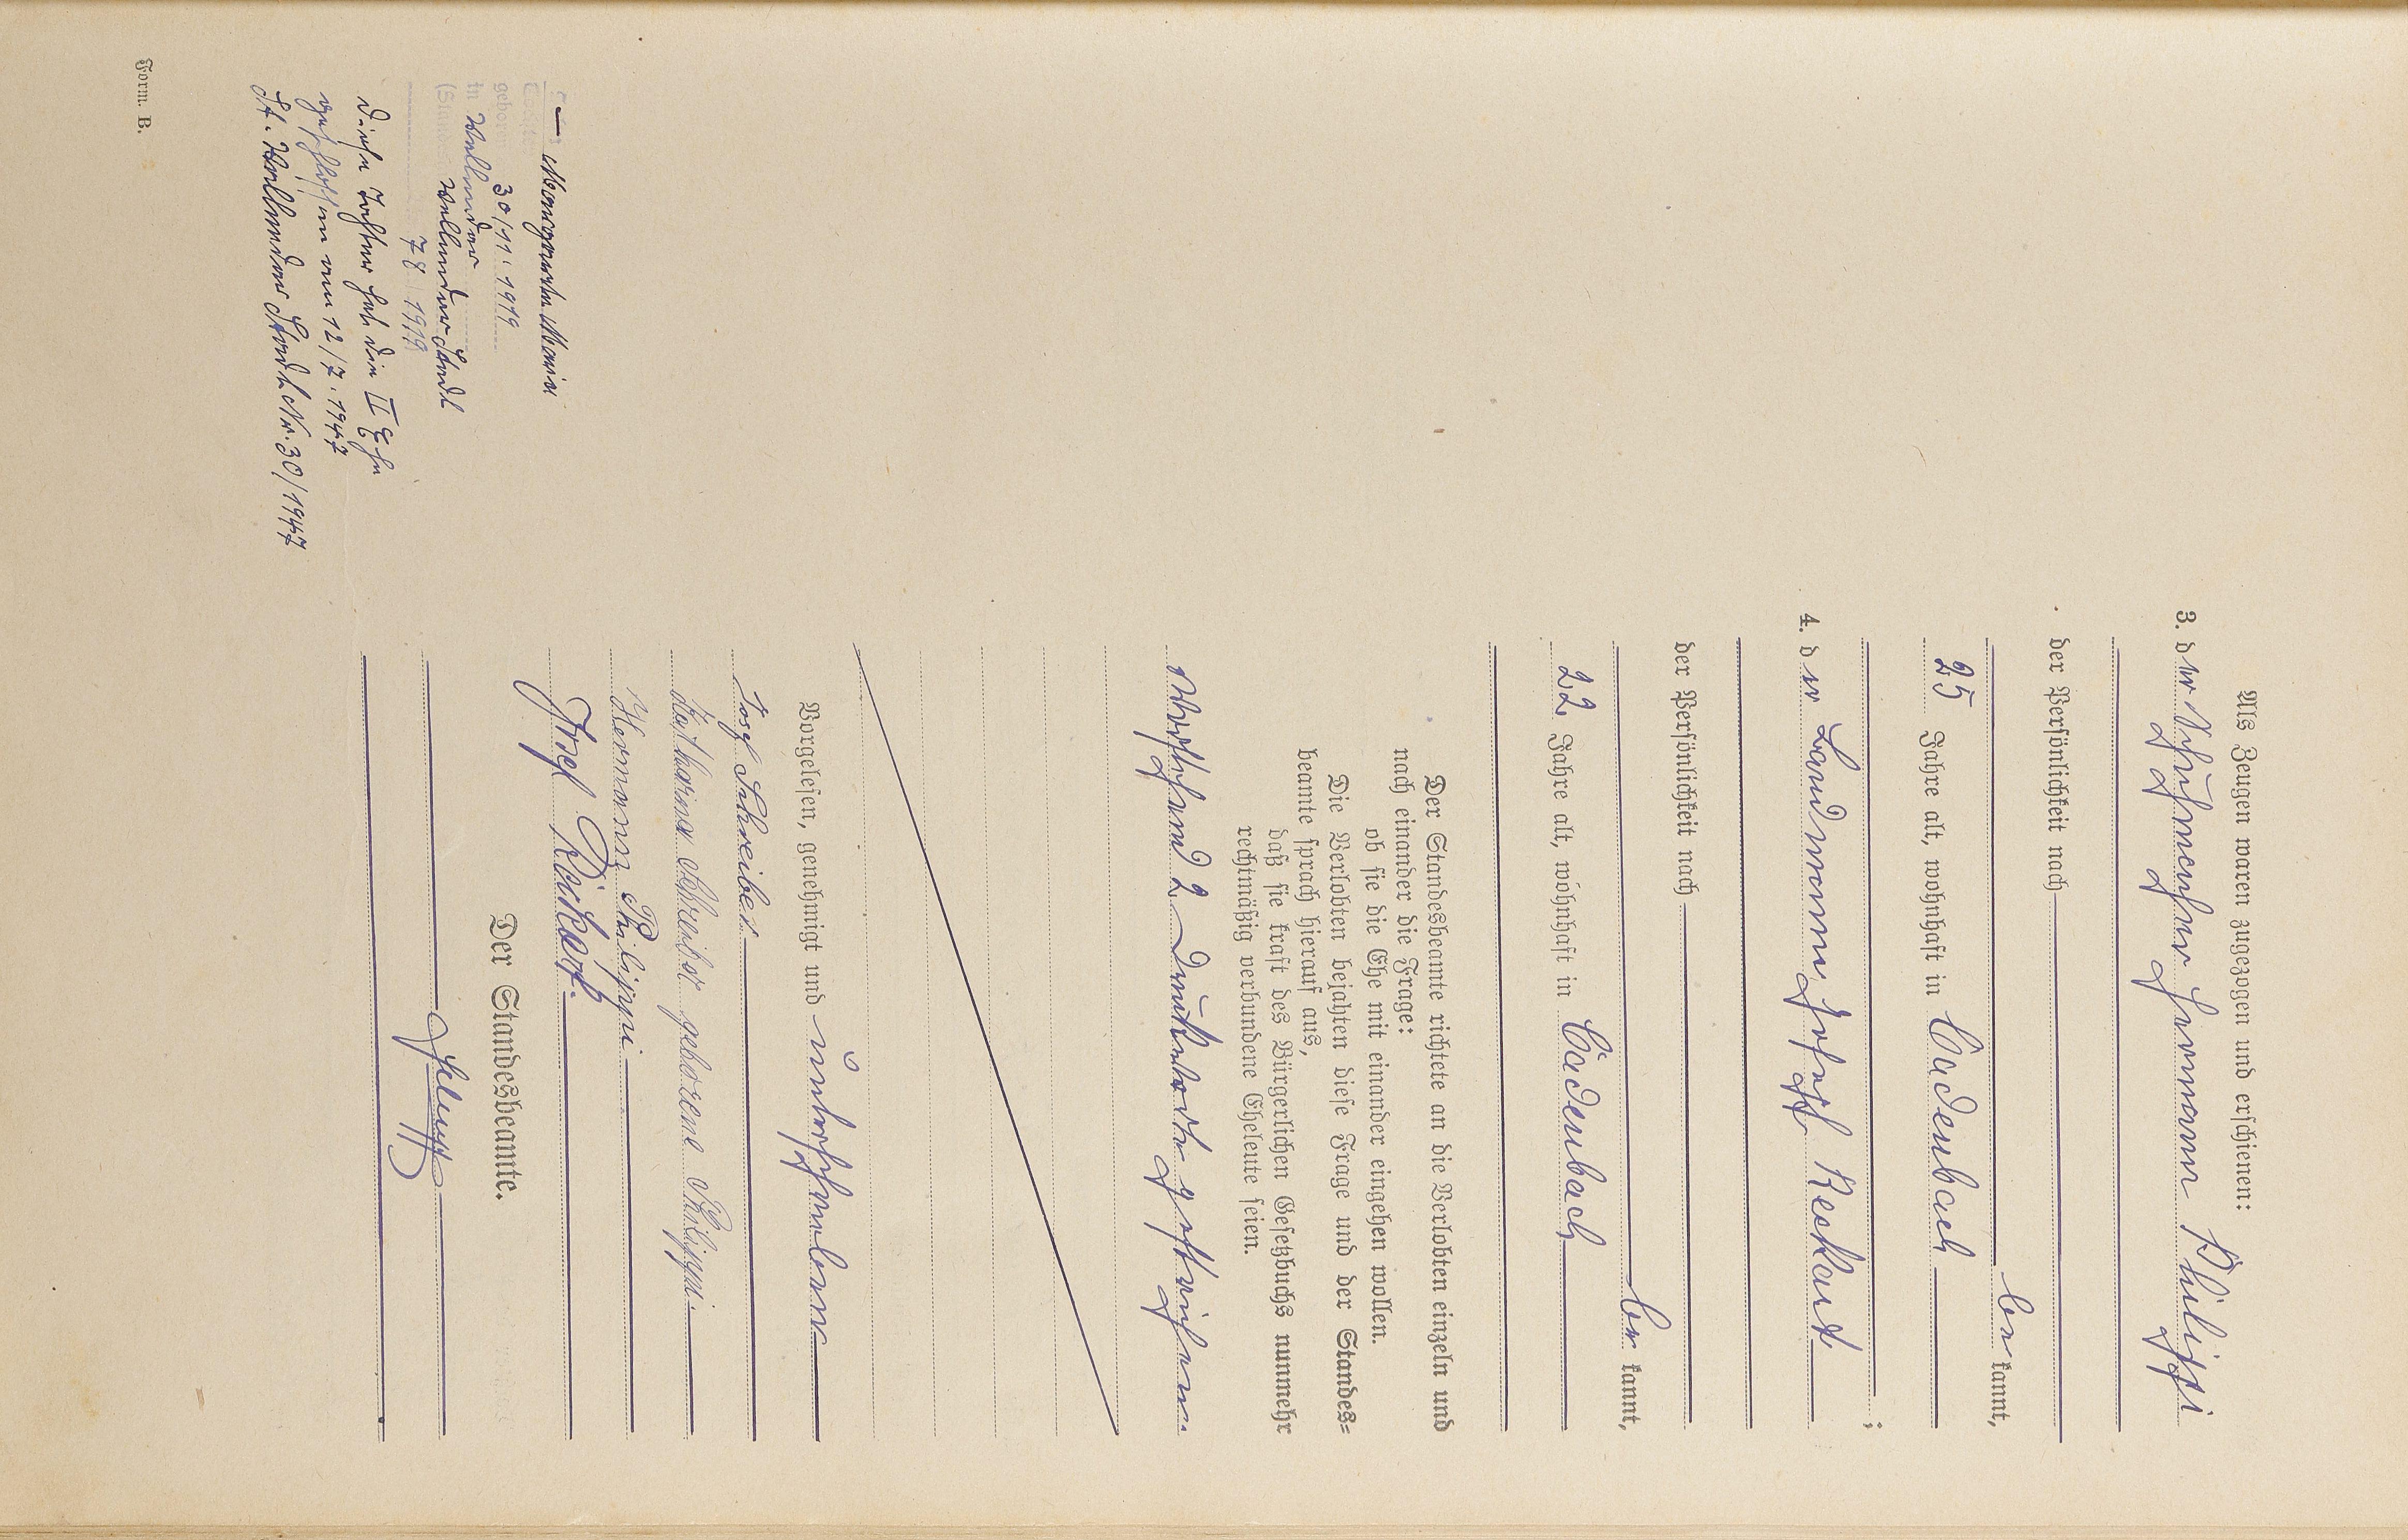 Als Zeugen waren zugezogen und erschienen:
3. der Schuhmacher Hermann Philippi
der Persönlichkeit nach
be kannt,
25 Jahre alt, wohnhaft in Cadenbach
;
4. der Landmann Josef Reckard
der Persönlichkeit nach
be kannt,
22 Jahre alt, wohnhaft in Cadenbach
Der Standesbeamte richtete an die Verlobten einzeln und
nach einander die Frage:
ob sie die Ehe mit einander eingehen wollen.
Die Verlobten bejahten diese Frage und der Standes=
beamte sprach hierauf aus,
daß sie kraft des Bürgerlichen Gesetzbuchs nunmehr
rechtmäßig verbundene Eheleute seien.
Vorstehend 2 Druckworte gestrichen.
Vorgelesen, genehmigt und unterschrieben
Josef Schreiber
Katharina Schreiber geborene Philippi.
Hermann Philippi
Josef Reckard.
Der Standesbeamte.
Margareta Maria
geboren 30/11. 1919
in Vallendar
(Stand Vallendar Stadt
78 1919
Diese Tochter hat die II Ehe
geschlossen am 12/7. 1947
St. A. Vallendar Stadt Nr. 30/1947
Form. B.